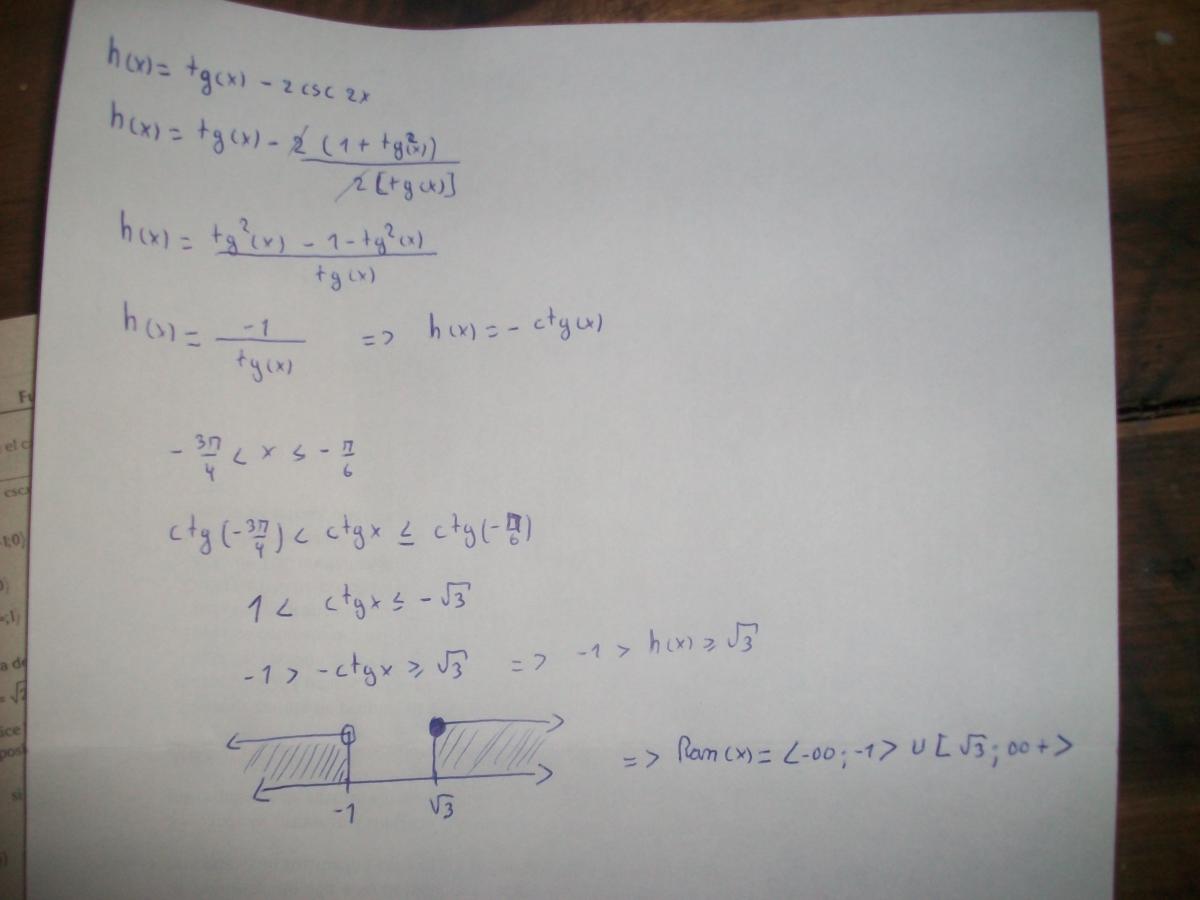 h(x) = tg(x) - 2 csc 2x
h(x) = tg(x) - 2 (1 + tg²(x)) / 2 [tg(x)]
h(x) = tg²(x) - 1 - tg²(x) / tg(x)
h(x) = -1 / tg(x) => h(x) = - ctg(x)
- 3π/4 < x ≤ - π/6
ctg(-3π/4) < ctgx ≤ ctg(-π/6)
1 < ctgx ≤ -√3
-1 > -ctgx ≥ √3 => -1 > h(x) ≥ √3
-1 √3
=> Ran(x) = <-∞; -1> U [√3; ∞+>
el c
-1;0⟩
a de
si